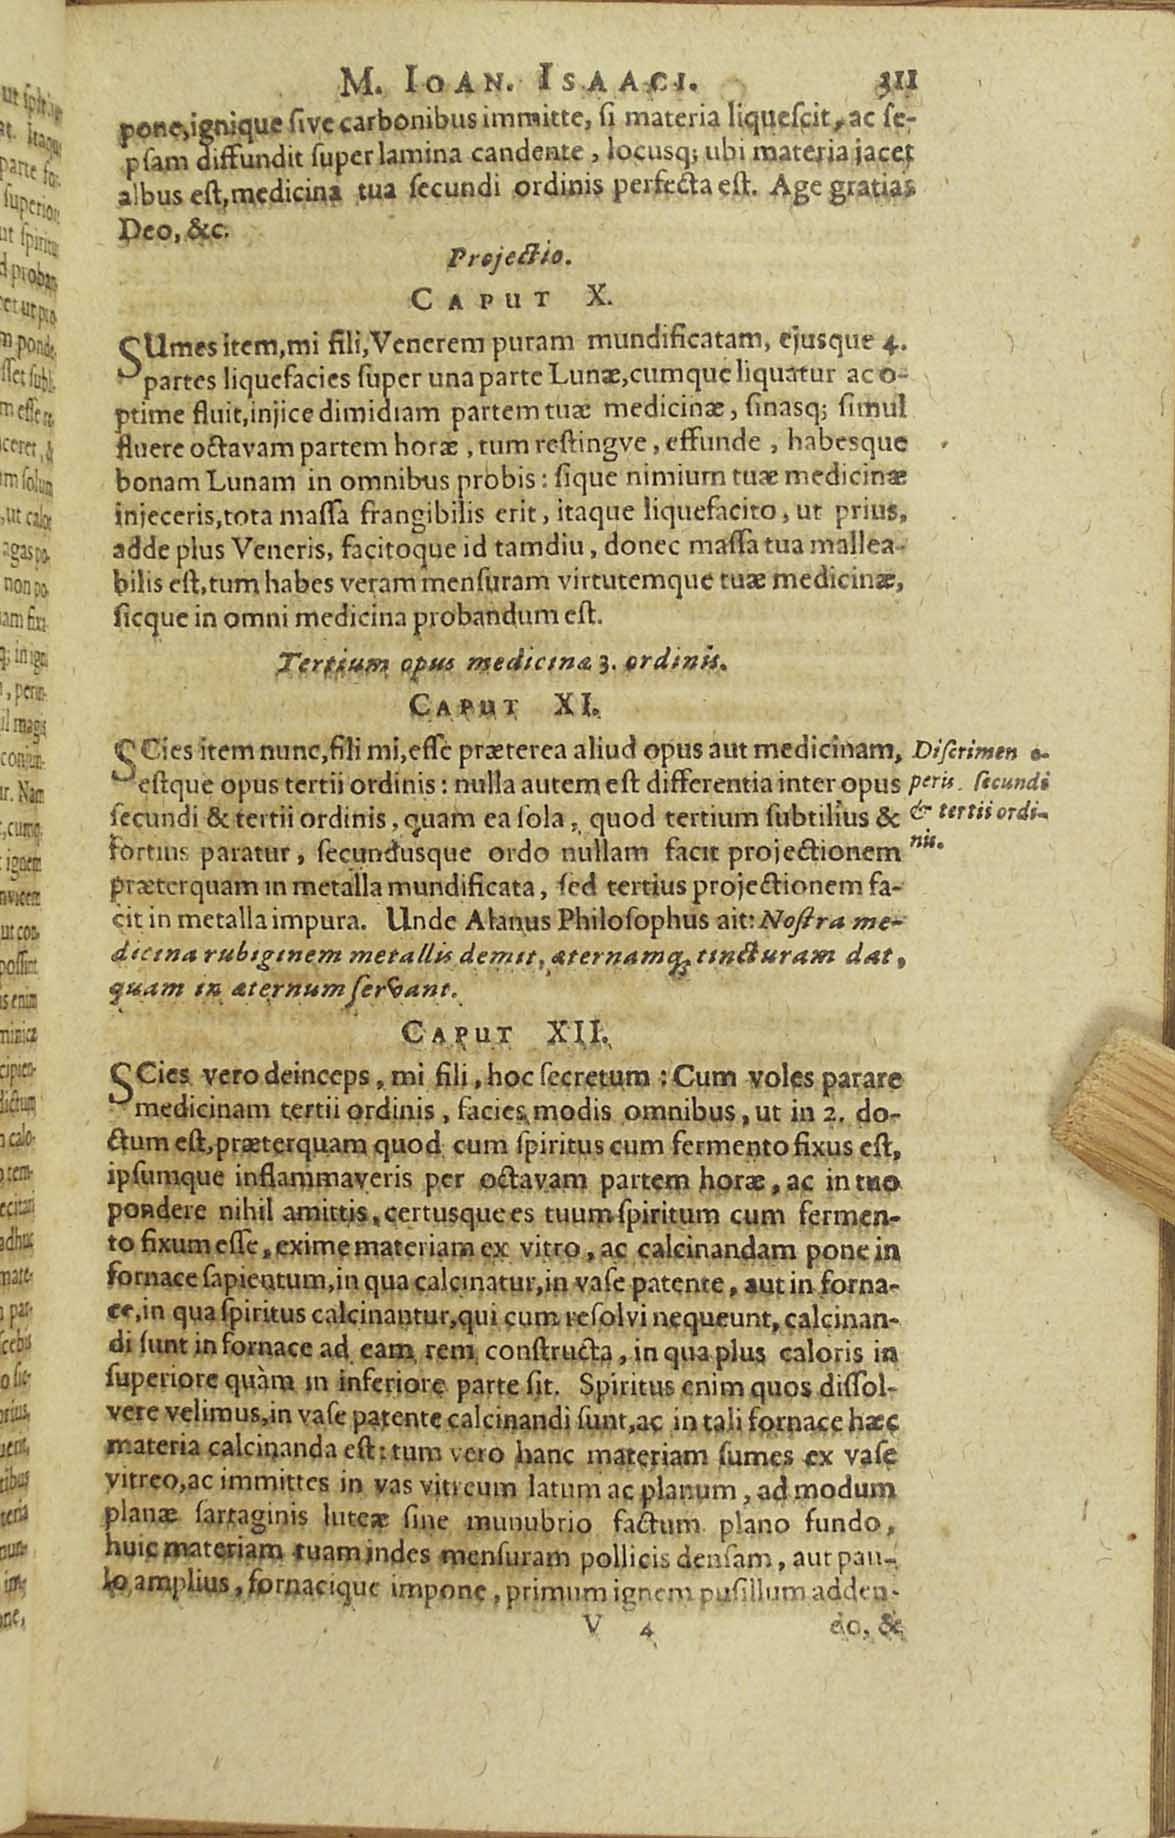 M. IOAN. ISAACI. 311
pone, ignique ſive carbonibus immitte, ſi materia liqueſcit, ac ſe-
pſam diffundit ſuper lamina candente, locusq; ubi materia jacet
albus eſt, medicina tua ſecundi ordinis perfecta eſt. Age gratias
Deo, &c.
Projectio.
CAPUT X.
SUmes item, mi fili, Venerem puram mundificatam, ejusque 4.
partes liquefacies ſuper una parte Lunæ, cumque liquatur ac o-
ptime fluit, injice dimidiam partem tuæ medicinæ, ſinasq; ſimul
fluere octavam partem horæ, tum reſtingve, effunde, habesque
bonam Lunam in omnibus probis: ſique nimium tuæ medicinæ
injeceris, tota maſſa frangibilis erit, itaque liquefacito, ut prius,
adde plus Veneris, facitoque id tamdiu, donec maſſa tua mallea-
bilis eſt, tum habes veram menſuram virtutemque tuæ medicinæ,
ſicque in omni medicina probandum eſt.
Tertium opus medicinæ 3. ordinis.
CAPUT XI.
SCies item nunc, fili mi, eſſe præterea aliud opus aut medicinam,
eſtque opus tertii ordinis: nulla autem eſt differentia inter opus
ſecundi & tertii ordinis, quam ea ſola, quod tertium ſubtilius &
fortius paratur, ſecundusque ordo nullam facit projectionem
præterquam in metalla mundificata, ſed tertius projectionem fa-
cit in metalla impura. Unde Alanus Philoſophus ait: Noſtra me-
dicina rubiginem metallis demit, æternamq; tincturam dat,
quam in æternum ſervant.
Diſcrimen o-
peris ſecundi
& tertii ordi-
nis.
CAPUT XII.
SCies vero deinceps, mi fili, hoc ſecretum: Cum voles parare
medicinam tertii ordinis, facies modis omnibus, ut in 2. do-
ctum eſt, præterquam quod cum ſpiritus cum fermento fixus eſt,
ipſumque inflammaveris per octavam partem horæ, ac in tuo
pondere nihil amittis, certusque es tuum ſpiritum cum fermen-
to fixum eſſe, exime materiam ex vitro, ac calcinandam pone in
fornace ſapientum, in qua calcinatur, in vaſe patente, aut in forna-
ce, in qua ſpiritus calcinantur, qui cum reſolvi nequeunt, calcinan-
di ſunt in fornace ad eam rem conſtructa, in qua plus caloris in
ſuperiore quàm in inferiore parte ſit. Spiritus enim quos diſſol-
vere velimus, in vaſe patente calcinandi ſunt, ac in tali fornace hæc
materia calcinanda eſt: tum vero hanc materiam ſumes ex vaſe
vitreo, ac immittes in vas vitreum latum ac planum, ad modum
planæ ſartaginis luteæ ſine munubrio factum plano fundo,
huic materiam tuam indes menſuram pollicis denſam, aut pau-
lo amplius, fornacique impone, primum ignem puſillum adden-
V 4 do, &